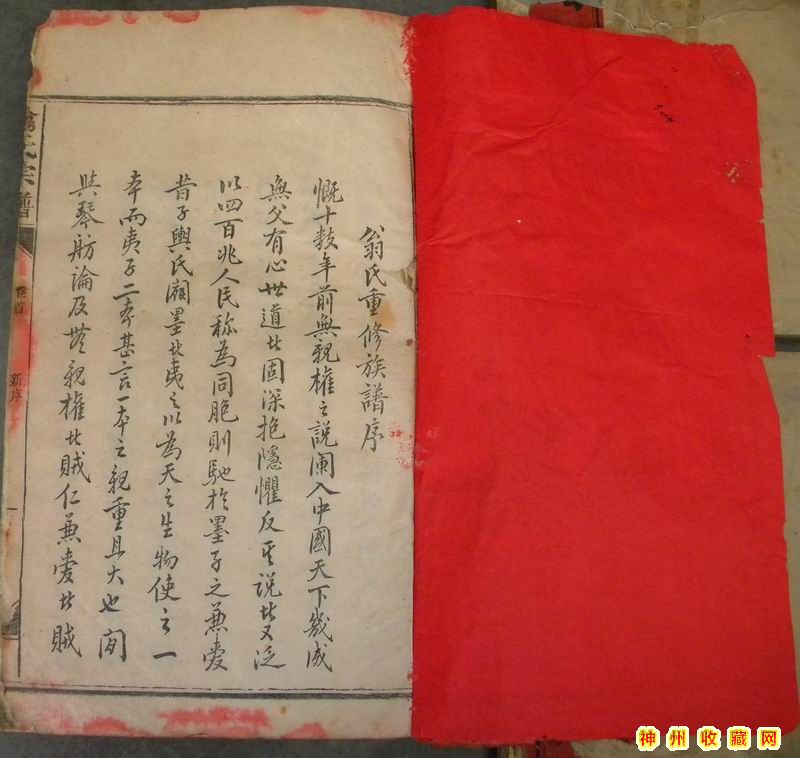 翁氏重修族譜序
慨十數年前無親權之說闌入中國天下幾成
無父有心世道者固深抱隱懼反其說者又泛
以四百兆人民称為同胞則馳於墨子之兼愛
昔子輿氏闢墨者夷之以為天之生物使之一
本而夷子二本甚言一本之親重且大也閒
與琴舫論及無親權者賊仁兼愛者賊
翁氏宗譜
卷首
新序
一
神州收藏网